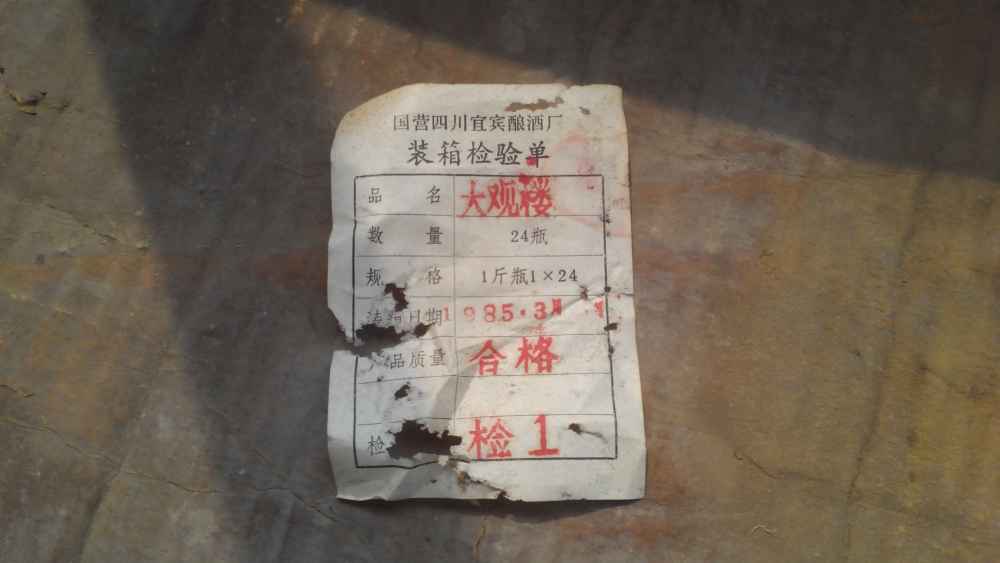 国营四川宜宾酿酒厂
装箱检验单
品 名 大观楼
数 量 24瓶
规 格 1斤瓶1×24
日期 1985.3月
品质量 合格
检 检1